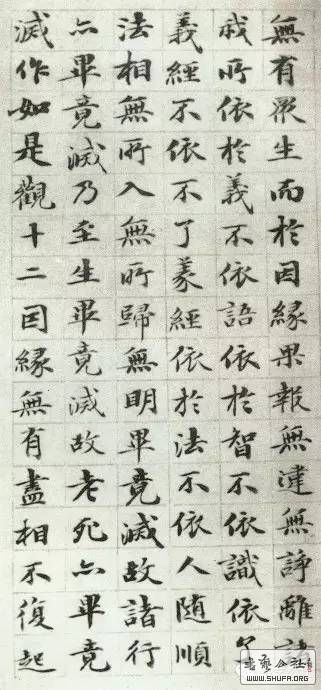 無有眾生而於因緣果報無違無諍離
我所依於義不依語依於智不依識依
義經不依不了義經依於法不依人随順
法相無所入無所歸無明畢竟滅故諸行
亦畢竟滅乃至生畢竟滅故老死亦畢竟
滅作如是觀十二因緣無有盡相不復起
書藝公社
WWW.SHUFA.ORG